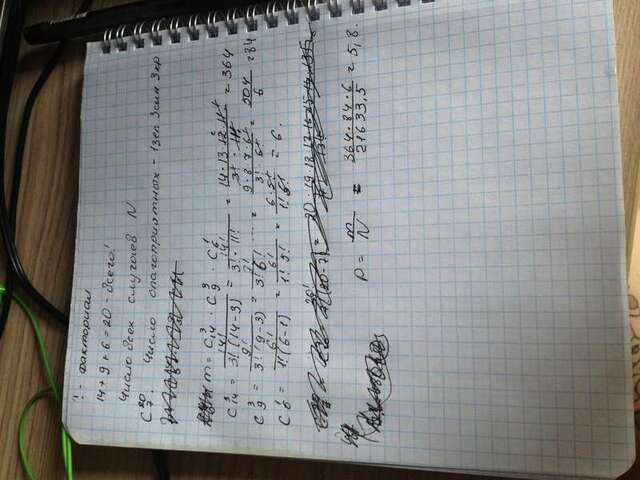 ! - факториал
14+9+6=20 - всего!
Число всех случаев N
C₇²⁰. Число благоприятных - 1зел 3син 3кр
m = C₁₄³ · C₉³ · C₆¹
C₁₄³ = 14! / 3!(14-3) = 14! / 3! · 11! = 14·13·12·11! / 3! · 11! = 364
C₉³ = 9! / 3!(9-3) = 9! / 3! 6! = 9·8·7·6! / 3! · 6! = 504 / 6 = 84
C₆¹ = 6! / 1!(6-1) = 6! / 1! 5! = 6·5! / 1! 5! = 6.
P = m / N = 364·84·6 / 21633,5 = 5,8.